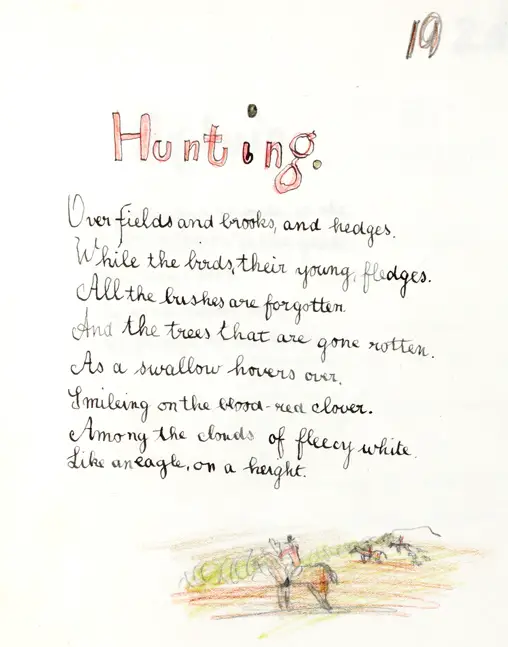 19
Hunting.
Over fields and brooks, and hedges.
While the birds, their young, fledges.
All the bushes are forgotten.
And the trees that are gone rotten.
As a swallow hovers over.
Smileing on the blood-red clover.
Among the clouds of fleecy white.
Like an eagle, on a height.